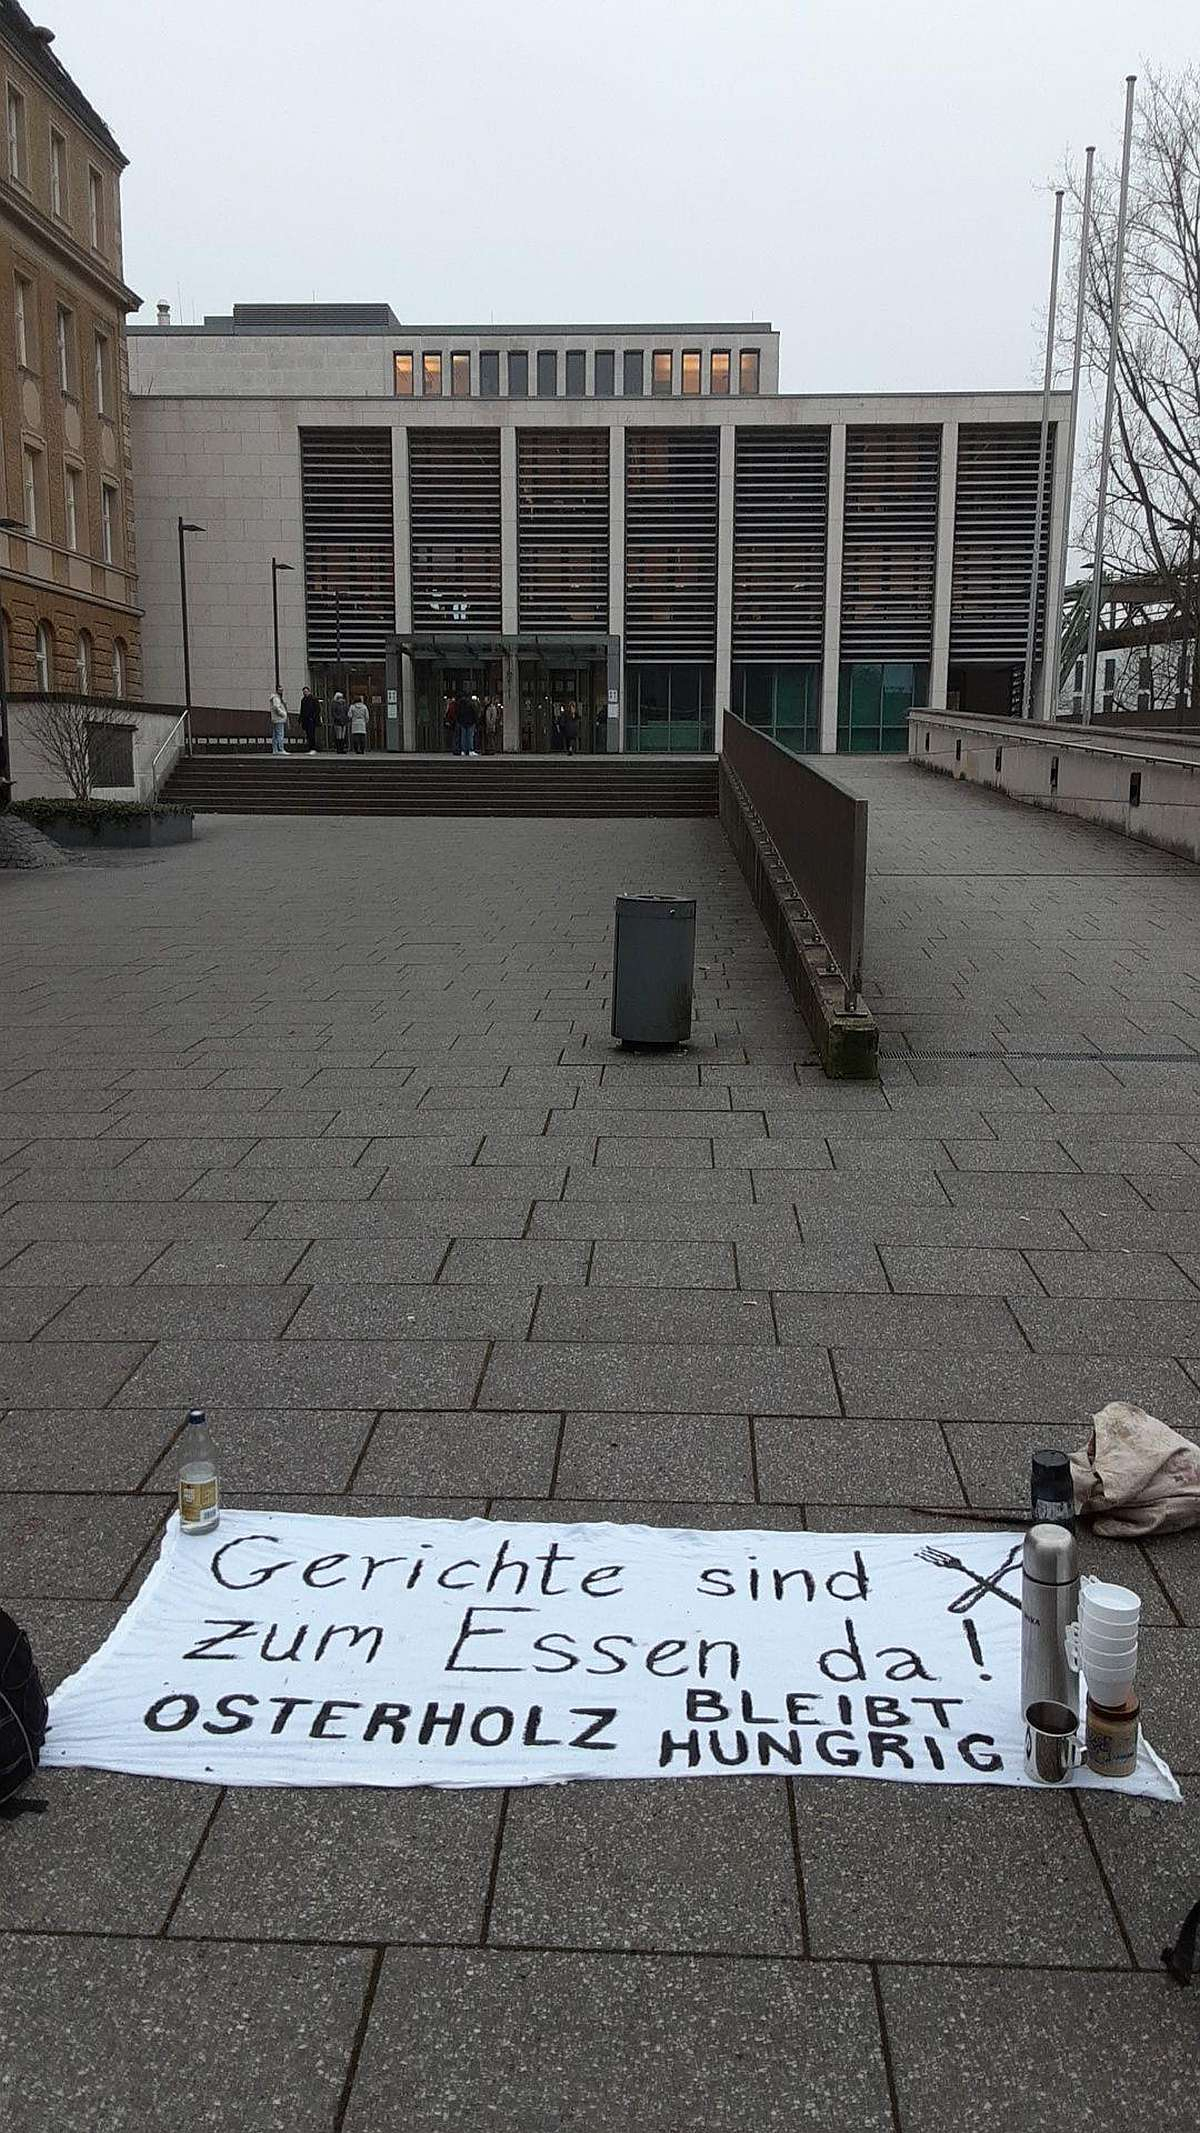 Gerichte sind
zum Essen da!
OSTERHOLZ BLEIBT
HUNGRIG